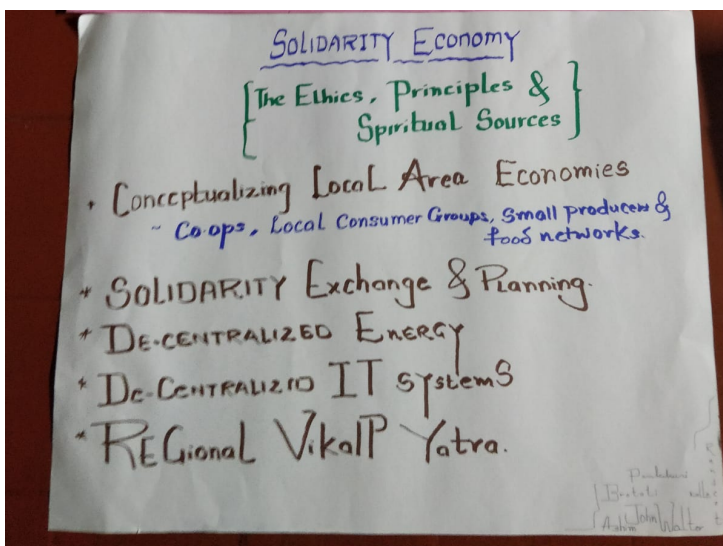 SOLIDARITY ECONOMY
[The Ethics, Principles &
Spiritual Sources]
* Conceptualizing Local Area Economies
~ Co-ops, Local Consumer Groups, Small producers &
food networks.
* SOLIDARITY Exchange & Planning.
* DE-CENTRALIZED ENERGY
* DE-CENTRALIZED IT systemS
* REGional VikalP Yatra.
John Walter